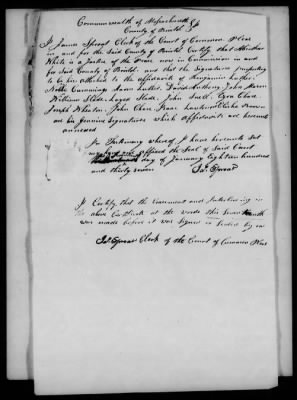 Commonwealth of Massachusetts
County of Bristol
I James Sproat Clerk of the Court of Common Pleas
in and for the Said County of Bristol Certify that
White is a Justice of the Peace now in Commission in and
for Said County of Bristol and that the Signatures purporting
to be his attached to the affidavits of Benjamin Luther,
Cummings Aaron Luther, David Anthony, John Mason
William Slade, Roger Slade, John Snell, Chace
Joseph Wheaton, John Chace, Isaac Brown
are his Genuine Signatures which affidavits are hereunto
annexed
In Testimony whereof I have hereunto set
affixed the Seal of Said Court
day of January Eighteen hundred
and thirty seven
Js. Sproat
I Certify that the Erasement and Interlining in
the above Certificate at the words this Seventeenth
was made before it was Signed or Sealed by me
Js. Sproat Clerk of the Court of Common Pleas